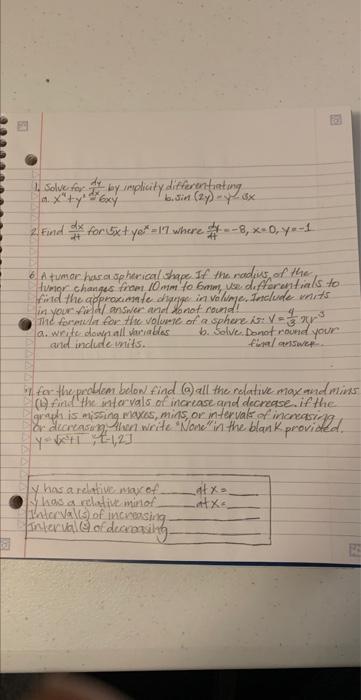 1. Solve for dy/dx by implicity differentiating
a. x⁴+y² = 6xy b. sin (2y) = y²-3x
2. Find dx/dt for 5x+yeˣ=17 where dy/dt = -8, x=0, y=-1
6. A tumor has a spherical shape. If the radius of the
tumor changes from 10mm to 6mm, use differentials to
find the approximate change in volume. Include units
in your final answer and do not round!
The formula for the volume of a sphere is: V = 4/3 πr³
a. write down all variables b. Solve. Do not round your
and include units. final answer.
for the problem below find (a) all the relative max and mins
(b) find the intervals of increase and decrease. if the
graph is missing maxes, mins, or intervals of increasing
or decreasing, then write "None" in the blank provided.
[-1,2]
y has a relative max of at x=
y has a relative min of at x=
Interval(s) of increasing
Interval(s) of decreasing